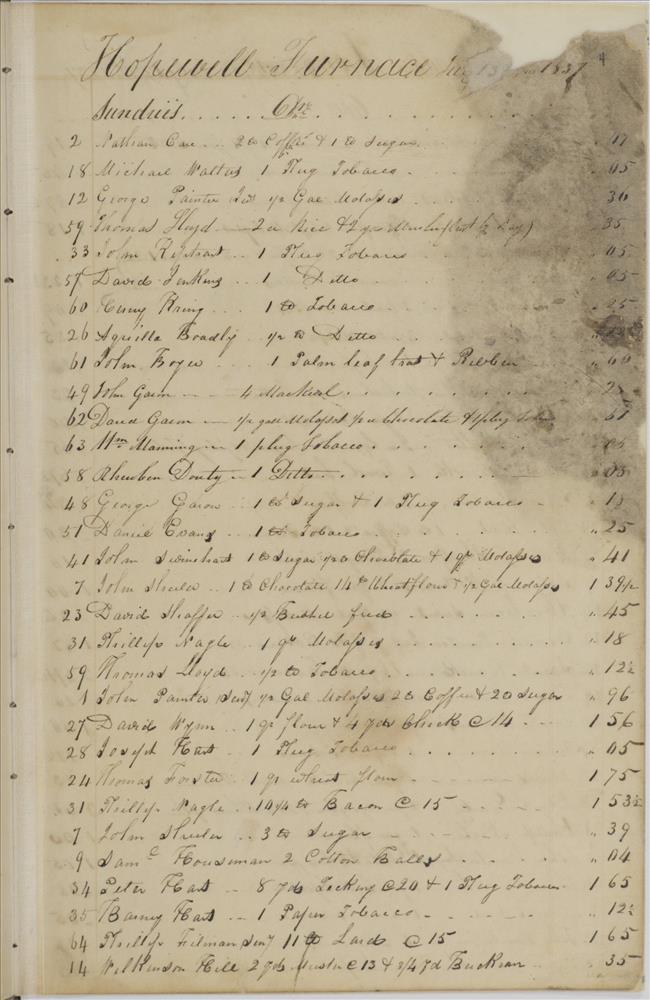 Hopewell Furnace 13 1837 4
Sundries Drs
2 Nathan Care 2 lb Coffee & 1 lb Sugar 47
18 Michael Walters 1 Plug Tobacco " 05
12 George Painter Jun 1/2 Gal Molasses " 30
59 Thomas Lloyd 35
33 John 1 Plug Tobacco " 05
57 David Jenkins 1 Ditto " 05
60 Henry Kring 1 lb Tobacco " 25
26 Aquilla Bradly 1/2 lb Ditto
61 John Boyer 1 Palm leaf hat & Ribbon " 60
49 John Gaen 4 Mackerel
62 David Gaem 1/2 gall Molasses 1/2 lb Chocolate & 1 plug 61
63 Wm Manning 1 plug Tobacco 05
58 Rheuben Douty 1 Ditto " 05
48 George Garow 1 lb Sugar & 1 Plug Tobacco " 18
51 Daniel Evans 1 lb Tobacco " 25
41 John Swinehart 1 lb Sugar 1/2 lb Chocolate & 1 qt Molasses " 41
7 John Sheeler 1 lb Chocolate 14 lb Wheat flour & 1/2 Gal Molasses 1 39 1/2
23 David Shaffer 1/2 Bushel feed " 45
31 Phillip Nagle 1 qt Molasses " 18
59 Thomas Lloyd 1/2 lb Tobacco " 12 1/2
1 John Painter Senr 1/2 Gal Molasses 2 lb Coffee & 2 lb Sugar " 96
27 David Wynn 1 qr flour & 4 yds Check @ 14 1 56
28 Joseph Hart 1 Plug Tobacco " 05
24 Thomas Foster 1 qr wheat flour 1 75
31 Phillip Nagle 10 1/4 lb Bacon @ 15 1 53 1/2
7 John Sheeler 3 lb Sugar " 39
9 Saml Houseman 2 Cotton Balls " 04
34 Peter Hart 8 yds Ticking @ 20 & 1 Plug Tobacco 1 65
35 Barney Hart 1 Paper Tobacco " 12 1/2
64 Phillip Filman Senr 11 lb Lard @ 15 1 65
14 Wilkinson Hill 2 yds Muslin @ 13 & 3/4 yd Buckram " 35